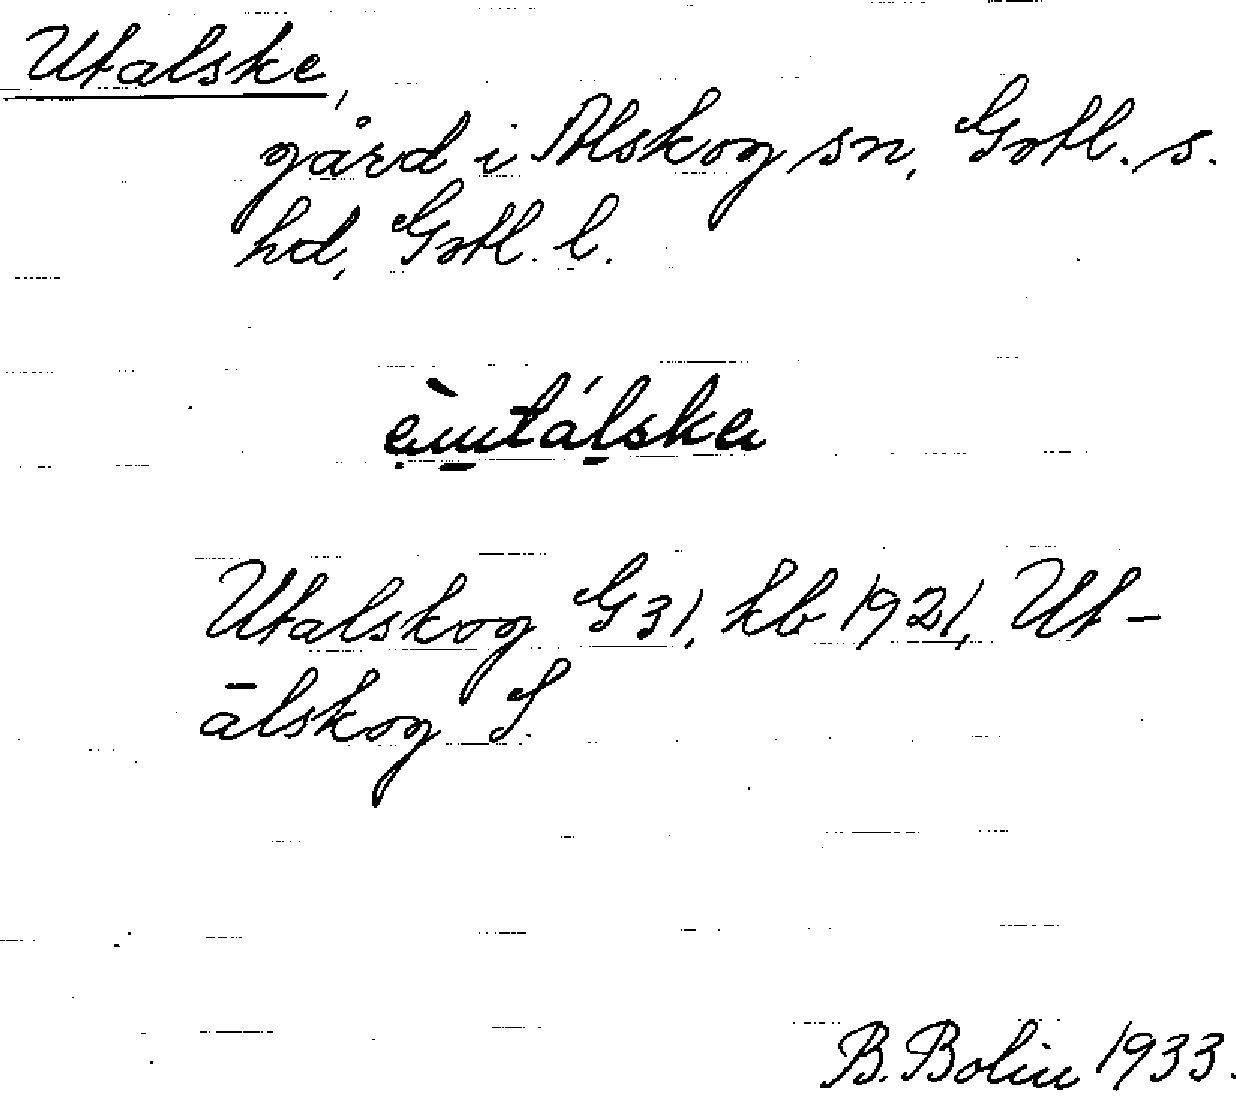 Utalske,
gård i Alskog sn, Gotl. s.
hd, Gotl. l.
Utalskog G31, kb 1921, Ut-
ālskog S.
B. Bolin 1933.